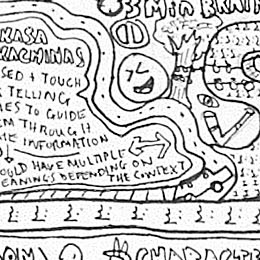 3 MIN BRAIN
KASA
KACHINAS
SED + TOUCH
TELLING
IES TO GUIDE
EM THROUGH
INFORMATION
OULD HAVE MULTIPLE
EANINGS DEPENDING ON
THE CONTEXT
CHARACTE